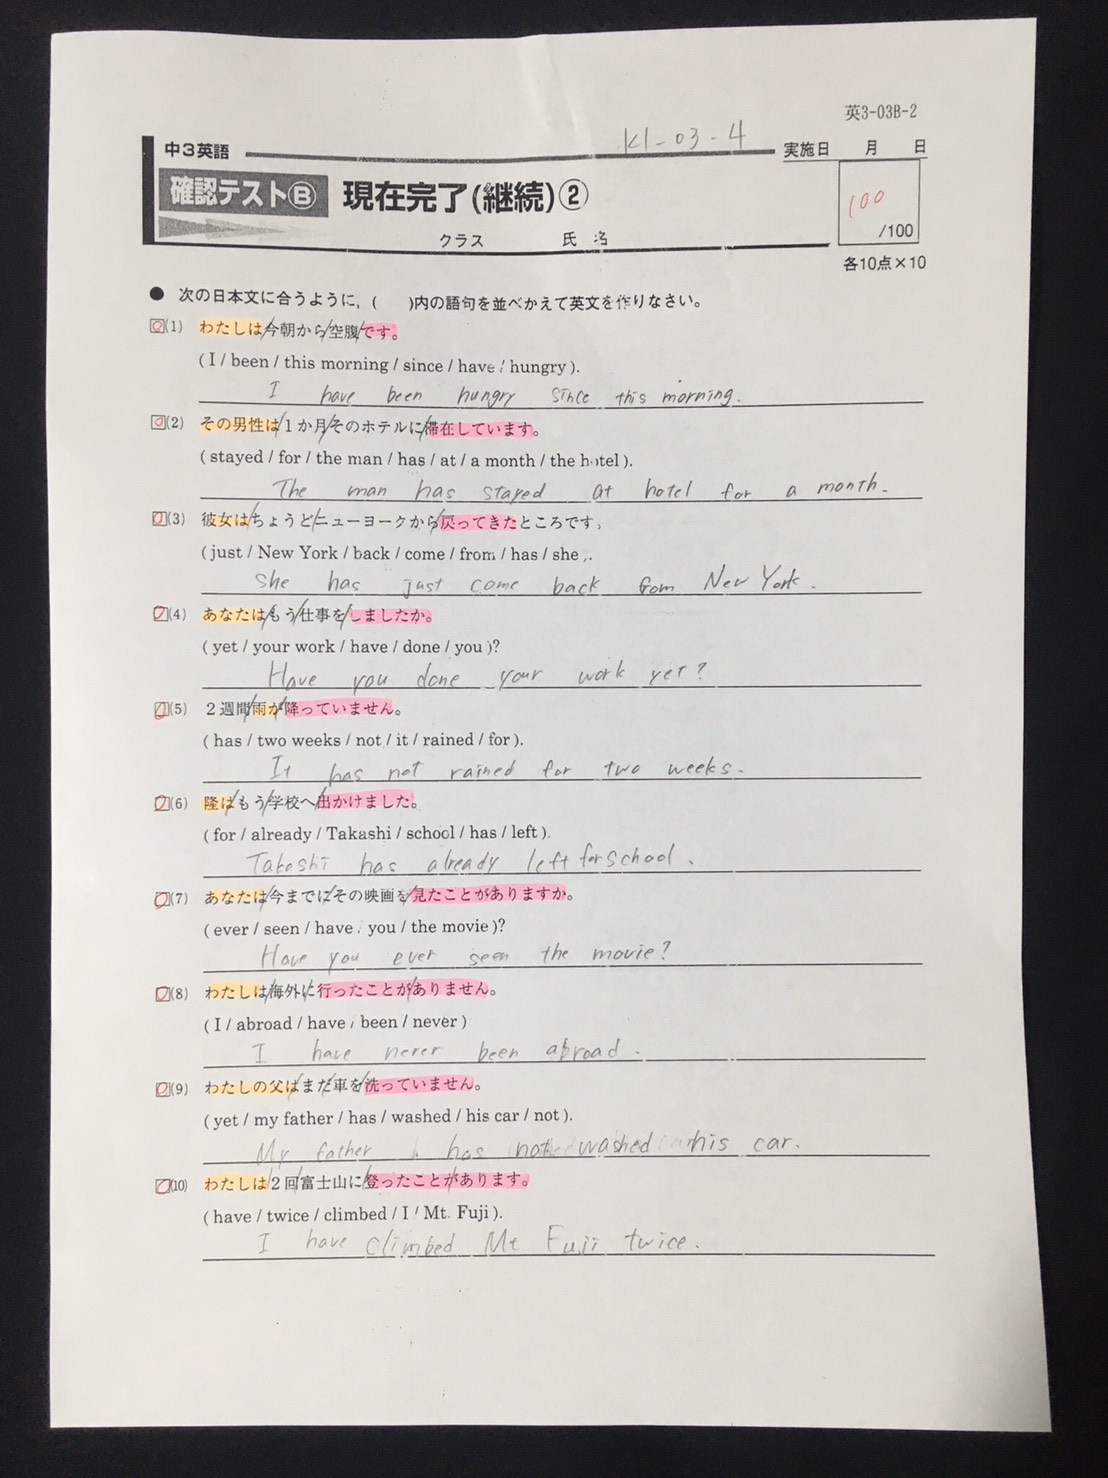 英3-03B-2
K1-03-4
中3英語
実施日 月 日
確認テストⒷ 現在完了(継続)②
100
/100
クラス 氏名
各10点×10
● 次の日本文に合うように,( )内の語句を並べかえて英文を作りなさい。
(1) わたしは/今朝から/空腹/です。
(I / been / this morning / since / have / hungry ).
I have been hungry since this morning.
(2) その男性は/1か月/そのホテルに/滞在しています。
( stayed / for / the man / has / at / a month / the hotel ).
The man has stayed at hotel for a month.
(3) 彼女は/ちょうど/ニューヨークから/戻ってきたところです。
(just / New York / back / come / from / has / she ).
She has just come back from New York.
(4) あなたは/もう/仕事を/しましたか。
( yet / your work / have / done / you )?
Have you done your work yet?
(5) 2週間/雨が/降っていません。
( has / two weeks / not / it / rained / for ).
It has not rained for two weeks.
(6) 隆は/もう/学校へ/出かけました。
( for / already / Takashi / school / has / left ).
Takashi has already left for school.
(7) あなたは/今までに/その映画を/見たことがありますか。
( ever / seen / have / you / the movie )?
Have you ever seen the movie?
(8) わたしは/海外に/行ったことが/ありません。
( I / abroad / have / been / never )
I have never been abroad.
(9) わたしの父は/まだ/車を/洗っていません。
( yet / my father / has / washed / his car / not ).
My father has not washed his car.
(10) わたしは/2回/富士山に/登ったことが/あります。
( have / twice / climbed / I / Mt. Fuji ).
I have climbed Mt Fuji twice.